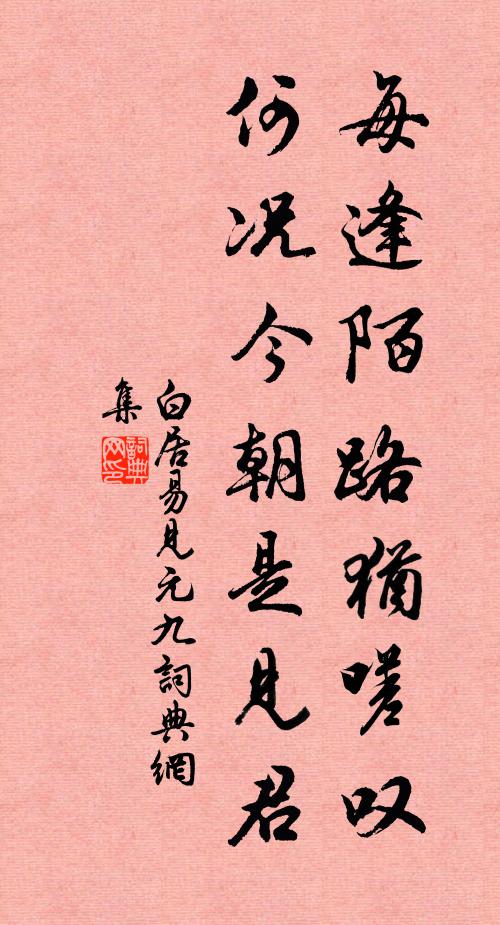 每逢陌路猶嗟叹
何况今朝是見君
白居易見元九詞典網
集
詞典网印